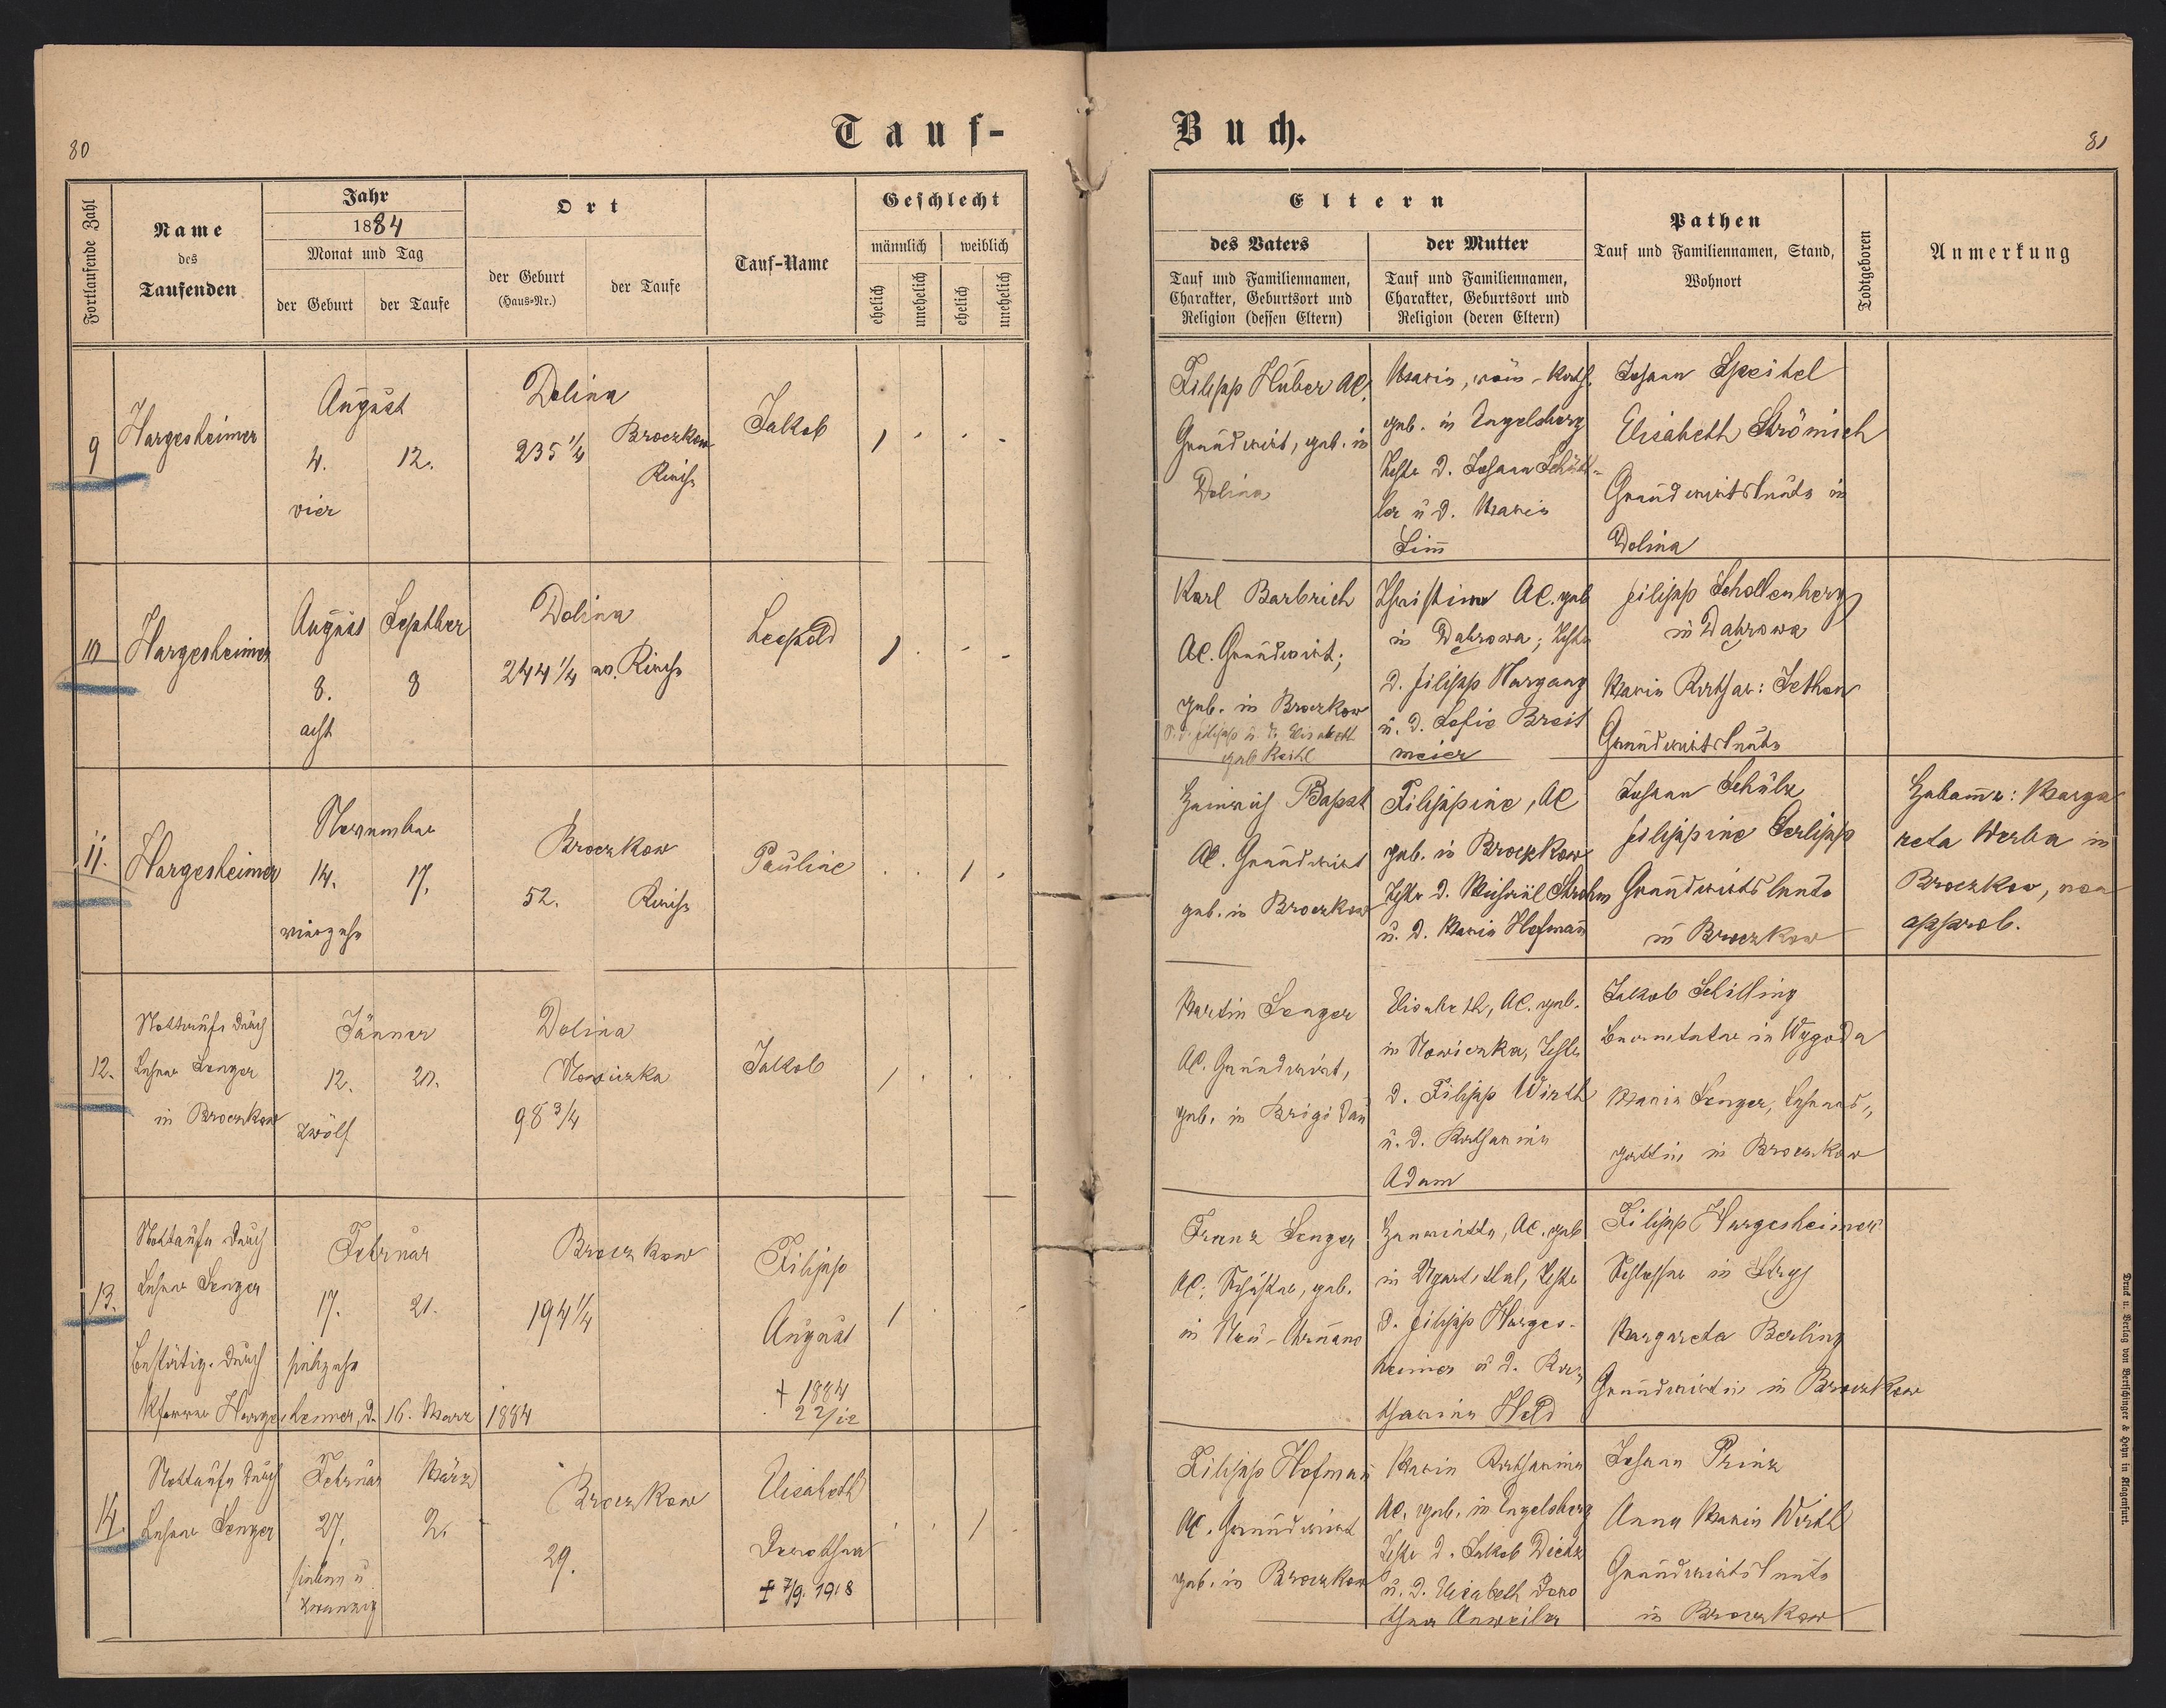 80
Tauf-
Fortlaufende Zahl
Name
des
Taufenden
Jahr
1884
Monat und Tag
der Geburt
der Taufe
Ort
der Geburt
(Haus-Nr.)
der Taufe
Tauf-Name
Geschlecht
männlich
weiblich
ehelich
unehelich
ehelich
unehelich
9
Hargesheimer
August
4. 12.
vier
Dolina
235 1/4
Broczkow
Kirche
Jakob
10
Hargesheimer
August Septber
8. 8
acht
Dolina
244 1/4
Kirche
Leopold
11.
Hargesheimer
November
14. 17.
vierzehn
Broczkow
52. Kirche
Pauline
12.
Nottaufe durch
Lehrer Senger
in Broczkow
Jänner
12. 20.
zwölf
Dolina
Nowiczka
98 3/4
Jakob
13.
Nottaufe durch
Lehrer Senger
Bestätig. durch
Pfarrer Hargesheimer, d. 16. März 1884
Februar
17. 21.
siebzehn
Broczkow
194 1/4
Filipp
August
+ 1884
22/12
14.
Nottaufe durch
Lehrer Senger
Februar März
27. 2.
sieben u.
zwanzig
Broczkow
29.
Elisabeth
Dorothea
+ 7/9. 1918
Buch.
81
Eltern
des Vaters
Tauf und Familiennamen,
Charakter, Geburtsort und
Religion (dessen Eltern)
der Mutter
Tauf und Familiennamen,
Charakter, Geburtsort und
Religion (deren Eltern)
Pathen
Tauf und Familiennamen, Stand,
Wohnort
Todtgeboren
Anmerkung
Filipp Huber AC.
Grundwirt, geb. in
Dolina
Maria, röm-kath.
geb. in Engelsberg
d. Johann
u d. Maria
Johann Speitel
Elisabeth Strömich
Grundwirtsleute in
Dolina
Karl Barbrich
AC. Grundwirt;
geb. in Broczkow
d. Filipp u. d. Elisabeth
Christine AC. geb
in Dabrowa;
d. Filipp Hargang
u. d. Sofie Breit
meier
Filipp Schollenberg
in Dabrowa
Maria Kathar: Jethon
Grundwirtsleute
Heinrich Bapst
AC. Grundwirt
geb. in Broczkow
Filippine, AC
geb. in Broczkow
d. Michael Strohm
u. d. Maria Hofmann
Johann Schulz
Filippine Serlipp
Grundwirtsleute
in Broczkow
Hebamme: Marga
reta Werba in
Broczkow, non
approb.
Martin Senger
AC. Grundwirt,
geb. in Brigidau
Elisabeth, AC. geb.
in Nowiczka,
d. Filipp Wirth
u. d. Katharina
Adam
Jakob Schilling
in Wygoda
Maria Senger, Lehrers-
gattin in Broczkow
Franz Senger
AC. Schuster, geb.
in
Henriette, AC. geb
in Ugartsthal,
d. Filipp Harges-
heimer u d. Ka-
tharina Held
Filipp Hargesheimer
Schlosser in Stryj
Margareta Berling
Grundwirtin in Broczkow
Filipp Hofmann
AC. Grundwirt
geb. in Broczkow
Maria Katharina
AC. geb. in Engelsberg
d. Jakob Dietz
u. d. Elisabeth Doro
thea Anweiler
Johann Prinz
Anna Maria Wirth
Grundwirtsleute
in Broczkow
Druck u. Verlag von Bertschinger & Heyn in Klagenfurt.